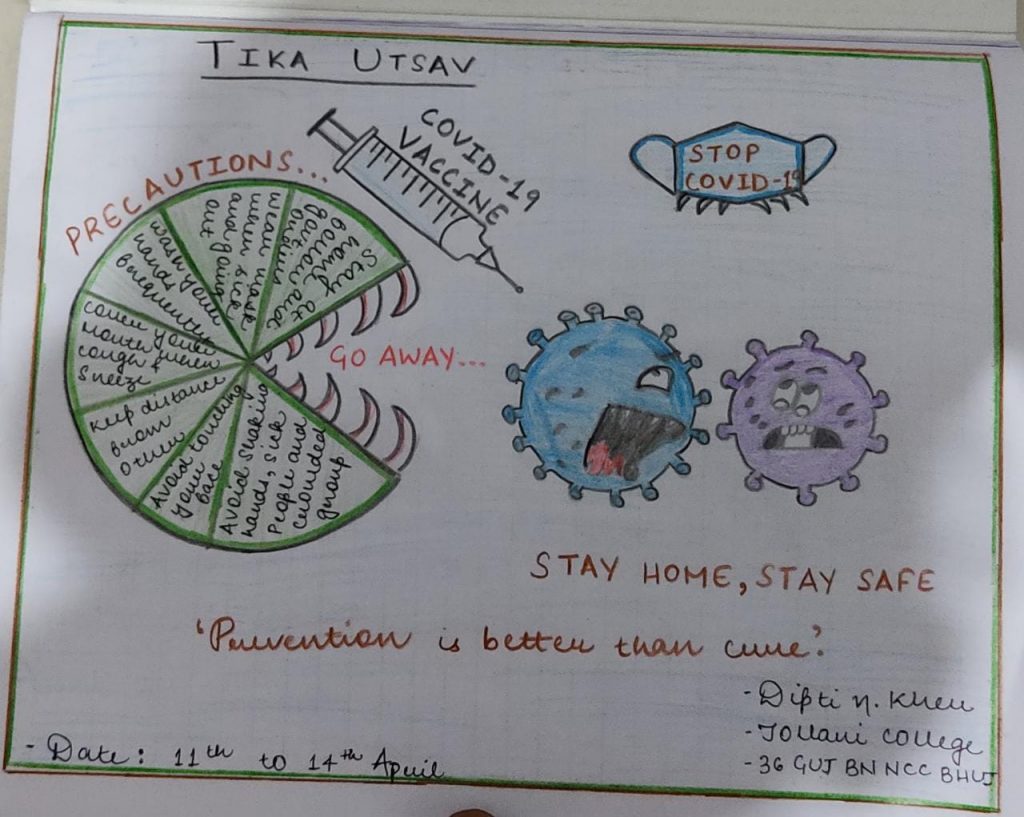 TIKA UTSAV
PRECAUTIONS...
COVID-19
VACCINE
STOP
COVID-19
Stay at
home and
avoid
wear mask
when sick
and going
out
wash your
hands
frequently
cover your
Mouth when
cough &
Sneeze
keep distance
from
other
Avoid touching
your
face
Avoid shaking
hands, sick
People and
crowded
group
GO AWAY...
STAY HOME, STAY SAFE
'Prevention is better than cure'.
- Dipti N. Kher
- Tollani College
- 36 GUJ BN NCC BHUJ
- Date: 11th to 14th April